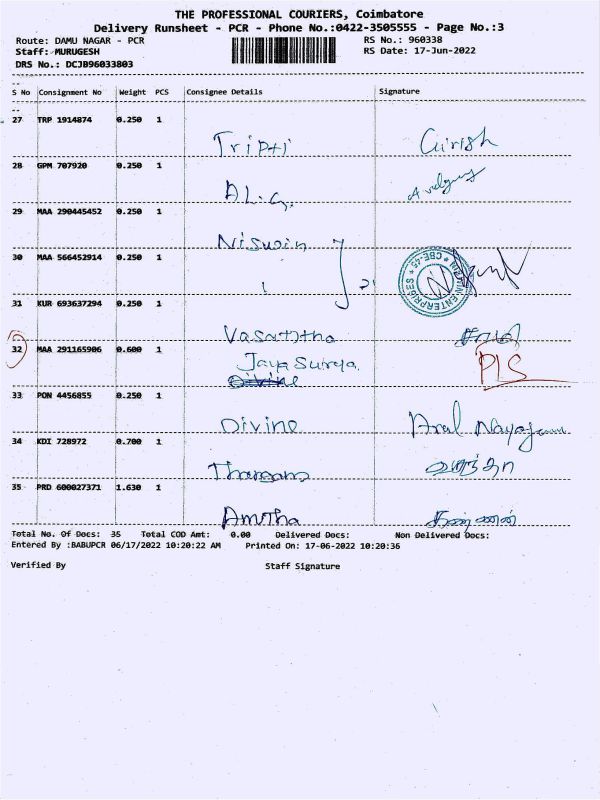 THE PROFESSIONAL COURIERS, Coimbatore
Delivery Runsheet - PCR - Phone No.:0422-3505555 - Page No.:3
Route: DAMU NAGAR - PCR RS No.: 960338
Staff: MURUGESH RS Date: 17-Jun-2022
DRS No.: DCJB96033803
S No Consignment No Weight PCS Consignee Details Signature
27 TRP 1914874 0.250 1
Tripti Girish
28 GPM 707920 0.250 1
AL.G.
29 MAA 290445452 0.250 1
Niswin
30 MAA 566452914 0.250 1
31 KUR 693637294 0.250 1
Vasantha
32 MAA 291165906 0.600 1
Jaya Surya PLS
Divine
33 PON 4456855 0.250 1
Divine
34 KDI 728972 0.700 1
35 PRD 600027371 1.630 1
Amutha
Total No. Of Docs: 35 Total COD Amt: 0.00 Delivered Docs: Non Delivered Docs:
Entered By :BABUPCR 06/17/2022 10:20:22 AM Printed On: 17-06-2022 10:20:36
Verified By Staff Signature